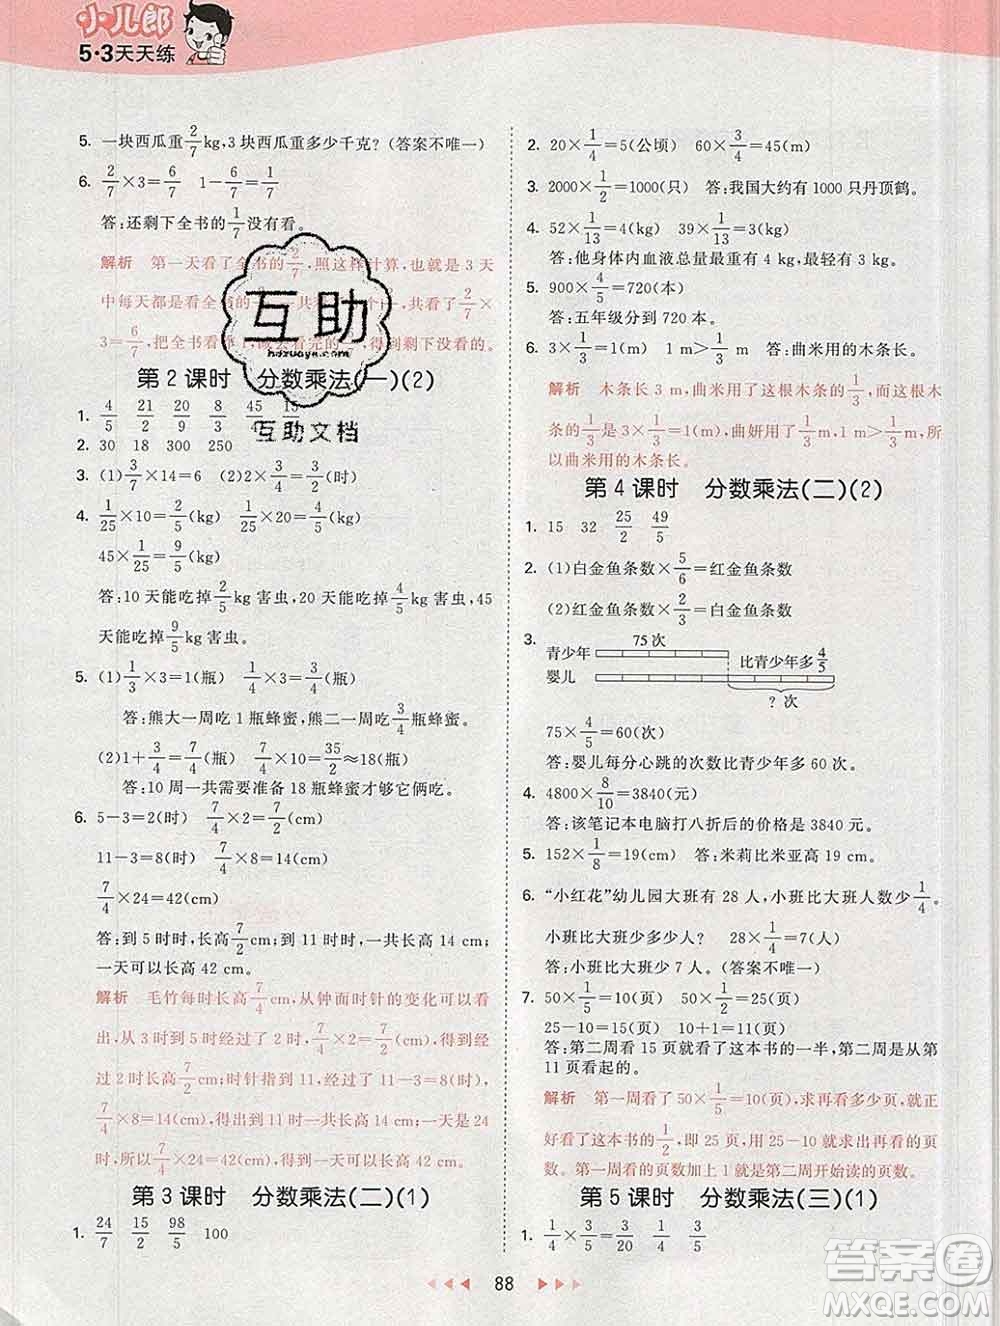 小儿郎
5·3天天练
5. 一块西瓜重2/7kg,3块西瓜重多少千克?(答案不唯一)
6. 2/7×3=6/7 1-6/7=1/7
答:还剩下全书的1/7没有看。
解析 第一天看了全书的2/7,照这样计算,也就是3天
中每天都是看全书的2/7 共看了2/7×
3=6/7,把全书看作1,减去看完的
互助
互助文档
第2课时 分数乘法(一)(2)
1. 4/5 21/2 20/9 8/3 45/4 15
2. 30 18 300 250
3. (1)3/7×14=6 (2)1/6×3=1/2(时)
4. 1/25×10=2/5(kg) 1/25×20=4/5(kg)
45×1/25=9/5(kg)
答:10天能吃掉2/5kg害虫,20天能吃掉4/5kg害虫,45
天能吃掉9/5kg害虫。
5. (1)1/3×3=1(瓶) 1/4×3=3/4(瓶)
答:熊大一周吃1瓶蜂蜜,熊二一周吃3/4瓶蜂蜜。
(2)1+3/4=7/4(瓶) 7/4×10=35/2≈18(瓶)
答:10周一共需要准备18瓶蜂蜜才够它俩吃。
6. 5-3=2(时) 7/4×2=7/2(cm)
11-3=8(时) 7/4×8=14(cm)
7/4×24=42(cm)
答:到5时时,长高7/2cm;到11时时,一共长高14cm;
一天可以长高42cm。
解析 毛竹每时长高7/4cm,从钟面时针的变化可以看
出,从3时到5时经过了2时,7/4×2=7/2(cm),得到
经过2时长高7/2cm;时针从3时到11时经过了8时,
7/4×8=14(cm),得出到11时时长高14cm;一天是24
时,所以7/4×24=42(cm),所以一天可以长高42cm。
第3课时 分数乘法(二)(1)
1. 24/7 15/2 98/5 100
2. 20×1/4=5(公顷) 60×3/4=45(m)
3. 2000×1/2=1000(只) 答:我国大约有1000只丹顶鹤。
4. 52×1/13=4(kg) 39×1/13=3(kg)
答:他身体内血液总量最大可能是4kg。
5. 900×4/5=720(本)
答:五年级分到720本。
6. 3×1/3=1(m) 答:曲米用的木条长。
解析 木条长3m,曲米用了这根木条的1/3,这根木
条的1/3是3×1/3=1(m),曲妍用了1/3m,1m>1/3m,所
以曲米用的木条长。
第4课时 分数乘法(二)(2)
1. 15 32 25/2 49/5
2. (1)白金鱼条数×5/6=红金鱼条数
(2)红金鱼条数×2/3=白金鱼条数
3. 75次
青少年 比青少年多4/5
婴儿
?次
75×4/5=60(次)
答:婴儿每分心跳的次数比青少年多60次。
4. 4800×8/10=3840(元)
答:该笔记本电脑打八折后的价格是3840元。
5. 152×1/8=19(cm) 答:米莉比米亚高19cm。
6. “小红花”幼儿园大班有28人,小班比大班人数少1/4。
小班比大班少多少人? 28×1/4=7(人)
答:小班比大班少7人。(答案不唯一)
7. 50×1/5=10(页) 50×1/2=25(页)
25-10=15(页) 10+1=11(页)
答:第二周看15页就看了这本书的一半,第二周是从第
11页看起的。
解析 第一周看了50×1/5=10(页),求再看多少页,就正
好看了这本书的1/2,即25页,用25-10求出再看的页
数;第一周看的页数加上1就是第二周开始读的页数。
第5课时 分数乘法(三)(1)
1. 1/4×3/5=3/20 1/4 1/20 3/5
88
答案圈
MXQE.COM